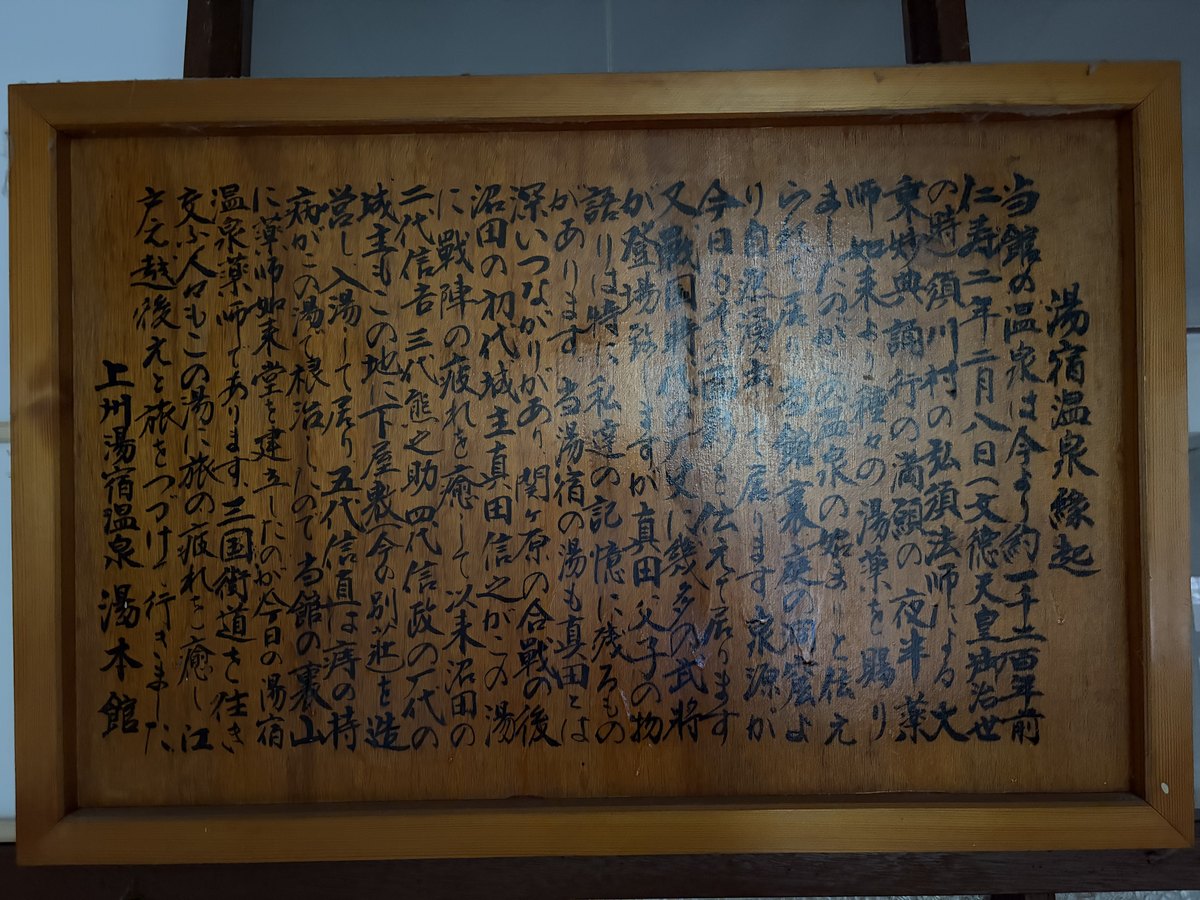 湯宿温泉縁起
当館の温泉は今より約一千二百年前
仁寿二年二月八日(文徳天皇御治世
の時)須川村の弘須法師による大
乗妙典誦行の満願の夜半薬
師如来より種々の湯薬を賜り
ましたのがこの温泉の始まりと伝え
られて居り当館裏庭の洞窟よ
り自然湧出して居ります泉源が
今日もその面影を伝えて居ります
又戦国時代の父に幾多の武将
が登場致しますが真田父子の物
語りは特に私達の記憶に残るもの
があります 当湯宿の湯も真田とは
深いつながりがあり、関ヶ原の合戦の後
沼田の初代城主真田信之がこの湯
に戦陣の疲れを癒して以来沼田の
二代信吉三代熊之助四代信政の一代の
城主もこの地に下屋敷(今の別荘)を造
営し入湯して居り五代信直は痔の持
病がこの湯で根治したので当館の裏山
に薬師如来堂を建立したのが今日の湯宿
温泉薬師であります、三国街道を往き
交ふ人々もこの湯に旅の疲れを癒し江
戸え越後えと旅をつづけて行きました
上州湯宿温泉 湯本館